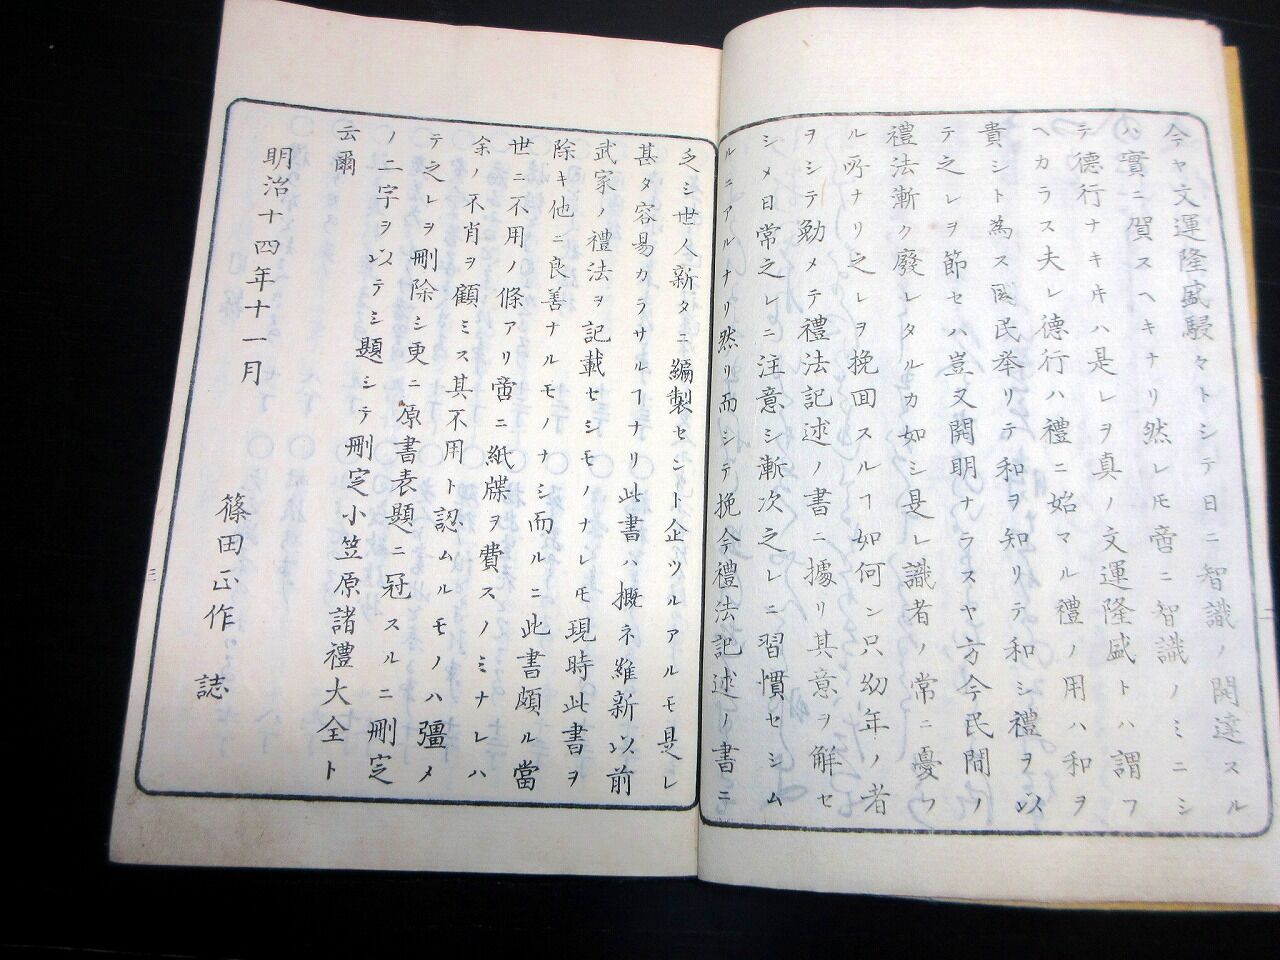 今ヤ文運隆盛駸々トシテ日ニ智識ノ開達スル
ハ實ニ賀スヘキナリ然レ𪜈啻ニ智識ノミニシ
テ德行ナキ𪜈ハ是レヲ真ノ文運隆盛トハ謂フ
ヘカラス夫レ德行ハ禮ニ始マル禮ノ用ハ和ヲ
貴シト為ス國民举リテ和ヲ知リテ和シ禮ヲ以
テ之レヲ節セハ豈又開明ナラスヤ方今民間ノ
禮法漸ク廢レタルカ如シ是レ識者ノ常ニ憂フ
ル所ナリ之レヲ挽回スルヿ如何ン只幼年ノ者
ヲシテ勉メテ禮法記述ノ書ニ據リ其意ヲ解セ
シメ日常之レニ注意シ漸次之レニ習慣セシム
ルニアルナリ然リ而シテ挽今禮法記述ノ書ニ
乏シ世人新タニ編製セント企ツルアルモ是レ
甚タ容易カラサルヿナリ此書ハ概ネ維新以前
武家ノ禮法ヲ記載セシモノナレ𪜈現時此書ヲ
除キ他ニ良善ナルモノナシ而ルニ此書頗ル當
世ニ不用ノ條アリ啻ニ紙牒ヲ費スノミナレハ
余ノ不肖ヲ顧ミス其不用ト認ムルモノハ彊メ
テ之レヲ刪除シ更ニ原書表題ニ冠スルニ刪定
ノ二字ヲ以テシ題シテ刪定小笠原諸禮大全ト
云爾
明治十四年十一月
篠田正作 誌
二
三